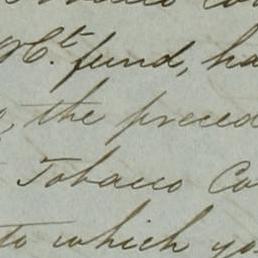 fund, ha
the preced
Tobacco Co
to which yo